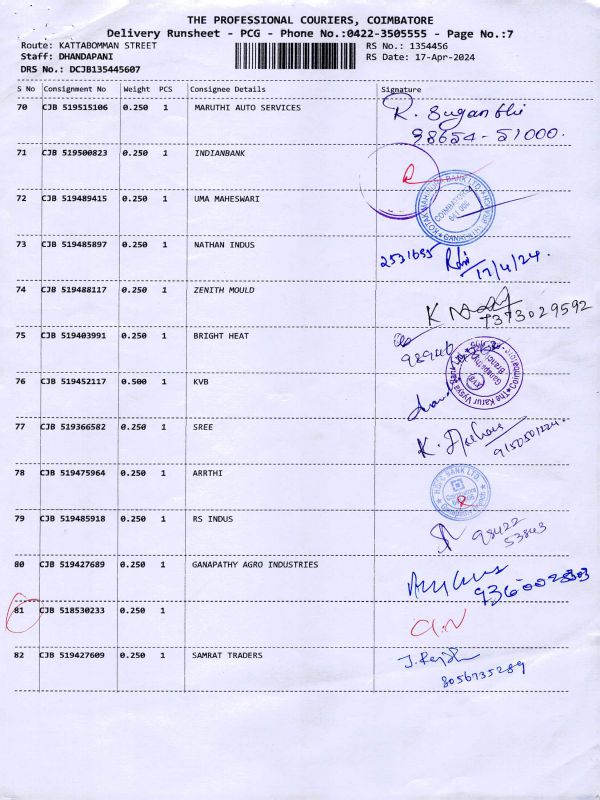 THE PROFESSIONAL COURIERS, COIMBATORE
Delivery Runsheet - PCG - Phone No.:0422-3505555 - Page No.:7
Route: KATTABOMMAN STREET RS No.: 1354456
Staff: DHANDAPANI RS Date: 17-Apr-2024
DRS No.: DCJB135445607
S No Consignment No Weight PCS Consignee Details Signature
70 CJB 519515106 0.250 1 MARUTHI AUTO SERVICES R. Suganthi
98654-51000.
71 CJB 519500823 0.250 1 INDIANBANK
72 CJB 519489415 0.250 1 UMA MAHESWARI
73 CJB 519485897 0.250 1 NATHAN INDUS 2531655
17/4/24.
74 CJB 519488117 0.250 1 ZENITH MOULD
7373029592
75 CJB 519403991 0.250 1 BRIGHT HEAT
76 CJB 519452117 0.500 1 KVB
77 CJB 519366582 0.250 1 SREE
9150501224
78 CJB 519475964 0.250 1 ARRTHI
HDFC BANK LTD
79 CJB 519485918 0.250 1 RS INDUS 98422
53843
80 CJB 519427689 0.250 1 GANAPATHY AGRO INDUSTRIES
81 CJB 518530233 0.250 1
82 CJB 519427609 0.250 1 SAMRAT TRADERS
8056735289